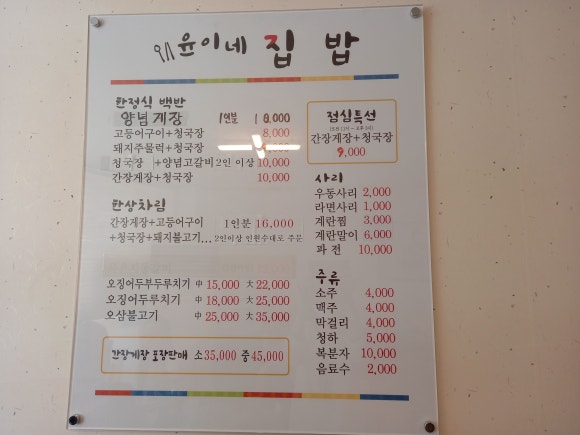 윤이네 집 밥
한정식 백반
양념게장 1인분 18,000
고등어구이+청국장 8,000
돼지주물럭+청국장
청국장 +양념고갈비 2인 이상 10,000
간장게장+청국장 10,000
한상차림
간장게장+고등어구이 1인분 16,000
+청국장+돼지불고기... 2인이상 인원수대로 주문
오징어두부두루치기 中 15,000 大 22,000
오징어두루치기 中 18,000 大 25,000
오삼불고기 中 25,000 大 35,000
간장게장 포장판매 소35,000 중45,000
점심특선
간장게장+청국장
9,000
사리
우동사리 2,000
라면사리 1,000
계란찜 3,000
계란말이 6,000
파 전 10,000
주류
소주 4,000
맥주 4,000
막걸리 4,000
청하 5,000
복분자 10,000
음료수 2,000